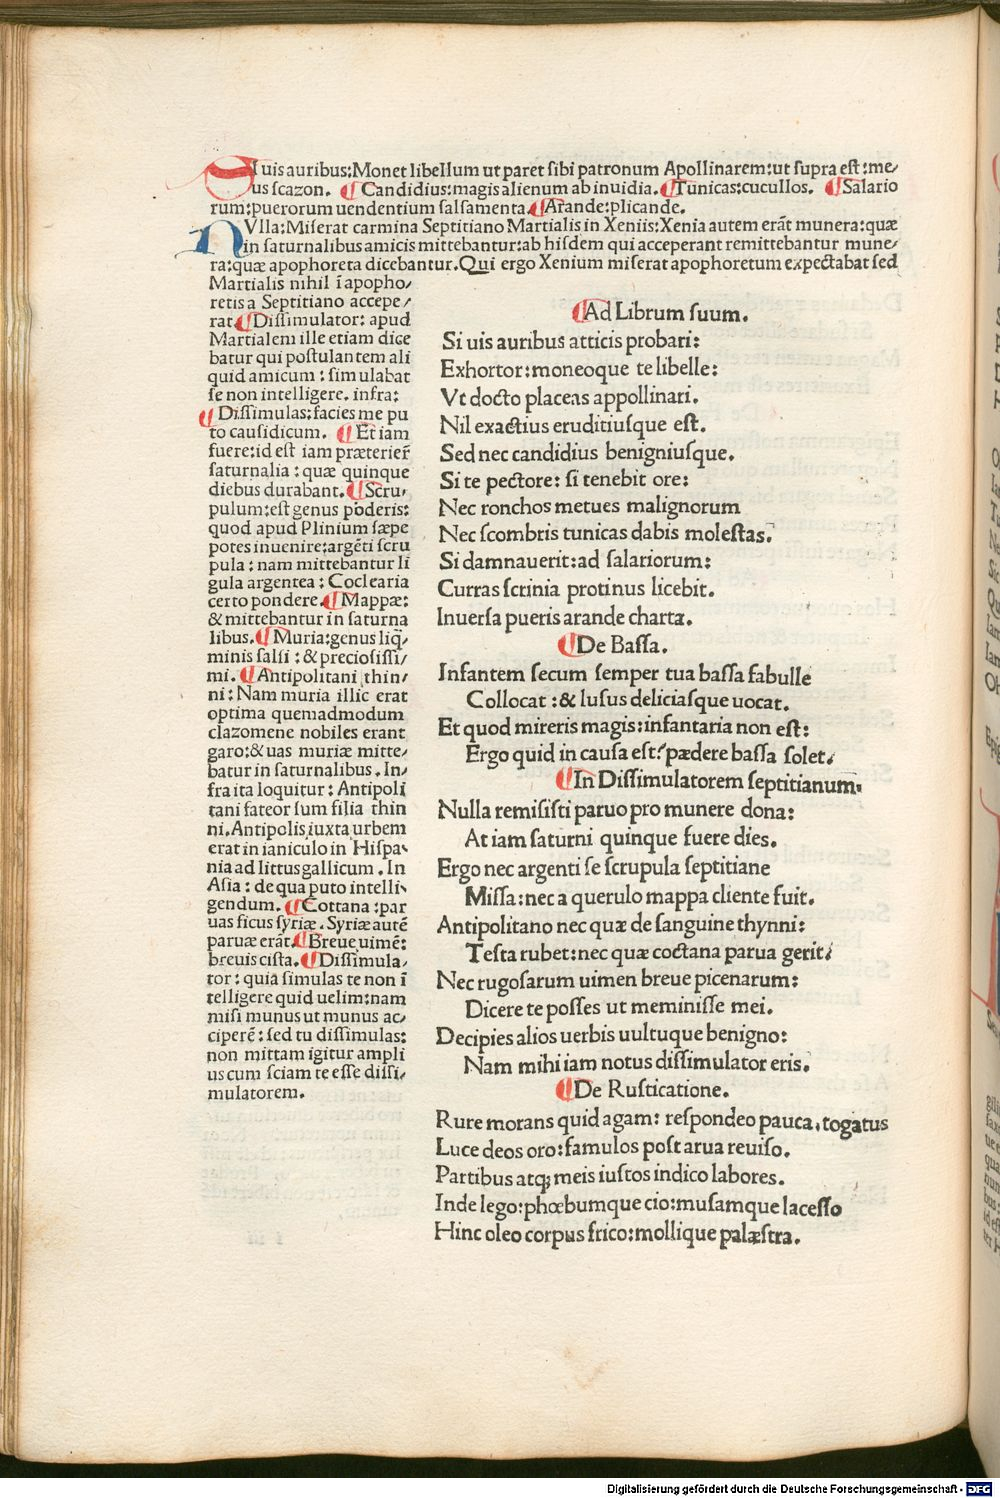 SI uis auribus:Monet libellum ut paret sibi patronum Apollinarem:ut supra est:me/
us scazon. ¶ Candidius:magis alienum ab inuidia. ¶ Tunicas:cucullos. ¶ Salario
rum:puerorum uendentium salsamenta. ¶ Arande:plicande.
NVlla:Miserat carmina Septitiano Martialis in Xeniis:Xenia autem erāt munera:quæ
in saturnalibus amicis mittebantur:ab hisdem qui acceperant remittebantur mune/
ra:quæ apophoreta dicebantur.Qui ergo Xenium miserat apophoretum expectabat sed
Martialis nihil ī apopho/
retis a Septitiano accepe/
rat. ¶ Dissimulator: apud
Martialem ille etiam dice
batur qui postulantem ali
quid amicum : simulabat
se non intelligere. infra:
¶ Dissimulas:facies me pu
to causidicum. ¶ Et iam
fuere:id est iam præterier̄
saturnalia : quæ quinque
diebus durabant. ¶ Scru/
pulum:est genus pōderis:
quod apud Plinium sæpe
potes inuenire:argēti scru
pula : nam mittebantur li
gula argentea : Coclearia
certo pondere. ¶ Mappæ:
& mittebantur in saturna
libus. ¶ Muria:genus liq̄
minis salsi : & preciosissi/
mi. ¶ Antipolitani thin/
ni : Nam muria illic erat
optima quemadmodum
clazomene nobiles erant
garo:& uas muriæ mitte/
batur in saturnalibus . In/
fra ita loquitur : Antipoli
tani fateor sum filia thin
ni. Antipolis iuxta urbem
erat in ianiculo in Hispa/
nia ad littus gallicum . In
Asia : de qua puto intelli/
gendum. ¶ Cottana :par
uas ficus syriæ. Syriæ autē
paruæ erāt. ¶ Breue uimē:
breuis cista. ¶ Dissimula/
tor : quia simulas te non ī
telligere quid uelim:nam
misi munus ut munus ac/
ciperē : sed tu dissimulas:
non mittam igitur ampli
us cum sciam te esse dissi/
mulatorem.
¶ Ad Librum suum.
Si uis auribus atticis probari:
Exhortor:moneoque te libelle:
Vt docto placeas appollinari.
Nil exactius eruditiusque est.
Sed nec candidius benigniusque.
Si te pectore: si tenebit ore:
Nec ronchos metues malignorum
Nec scombris tunicas dabis molestas.
Si damnauerit:ad salariorum:
Curras scrinia protinus licebit.
Inuersa pueris arande charta.
¶ De Bassa.
Infantem secum semper tua bassa fabulle
Collocat :& lusus deliciasque uocat.
Et quod mireris magis:infantaria non est:
Ergo quid in causa est? pædere bassa solet.
¶ In Dissimulatorem septitianum.
Nulla remisisti paruo pro munere dona:
At iam saturni quinque fuere dies.
Ergo nec argenti se scrupula septitiane
Missa: nec a querulo mappa cliente fuit.
Antipolitano nec quæ de sanguine thynni:
Testa rubet:nec quæ coctana parua gerit:
Nec rugosarum uimen breue picenarum:
Dicere te posses ut meminisse mei.
Decipies alios uerbis uultuque benigno:
Nam mihi iam notus dissimulator eris.
¶ De Rusticatione.
Rure morans quid agam: respondeo pauca, togatus
Luce deos oro:famulos post arua reuiso.
Partibus atq; meis iustos indico labores.
Inde lego:phœbumque cio:musamque lacesso
Hinc oleo corpus frico:mollique palæstra.
Digitalisierung gefördert durch die Deutsche Forschungsgemeinschaft - DFG